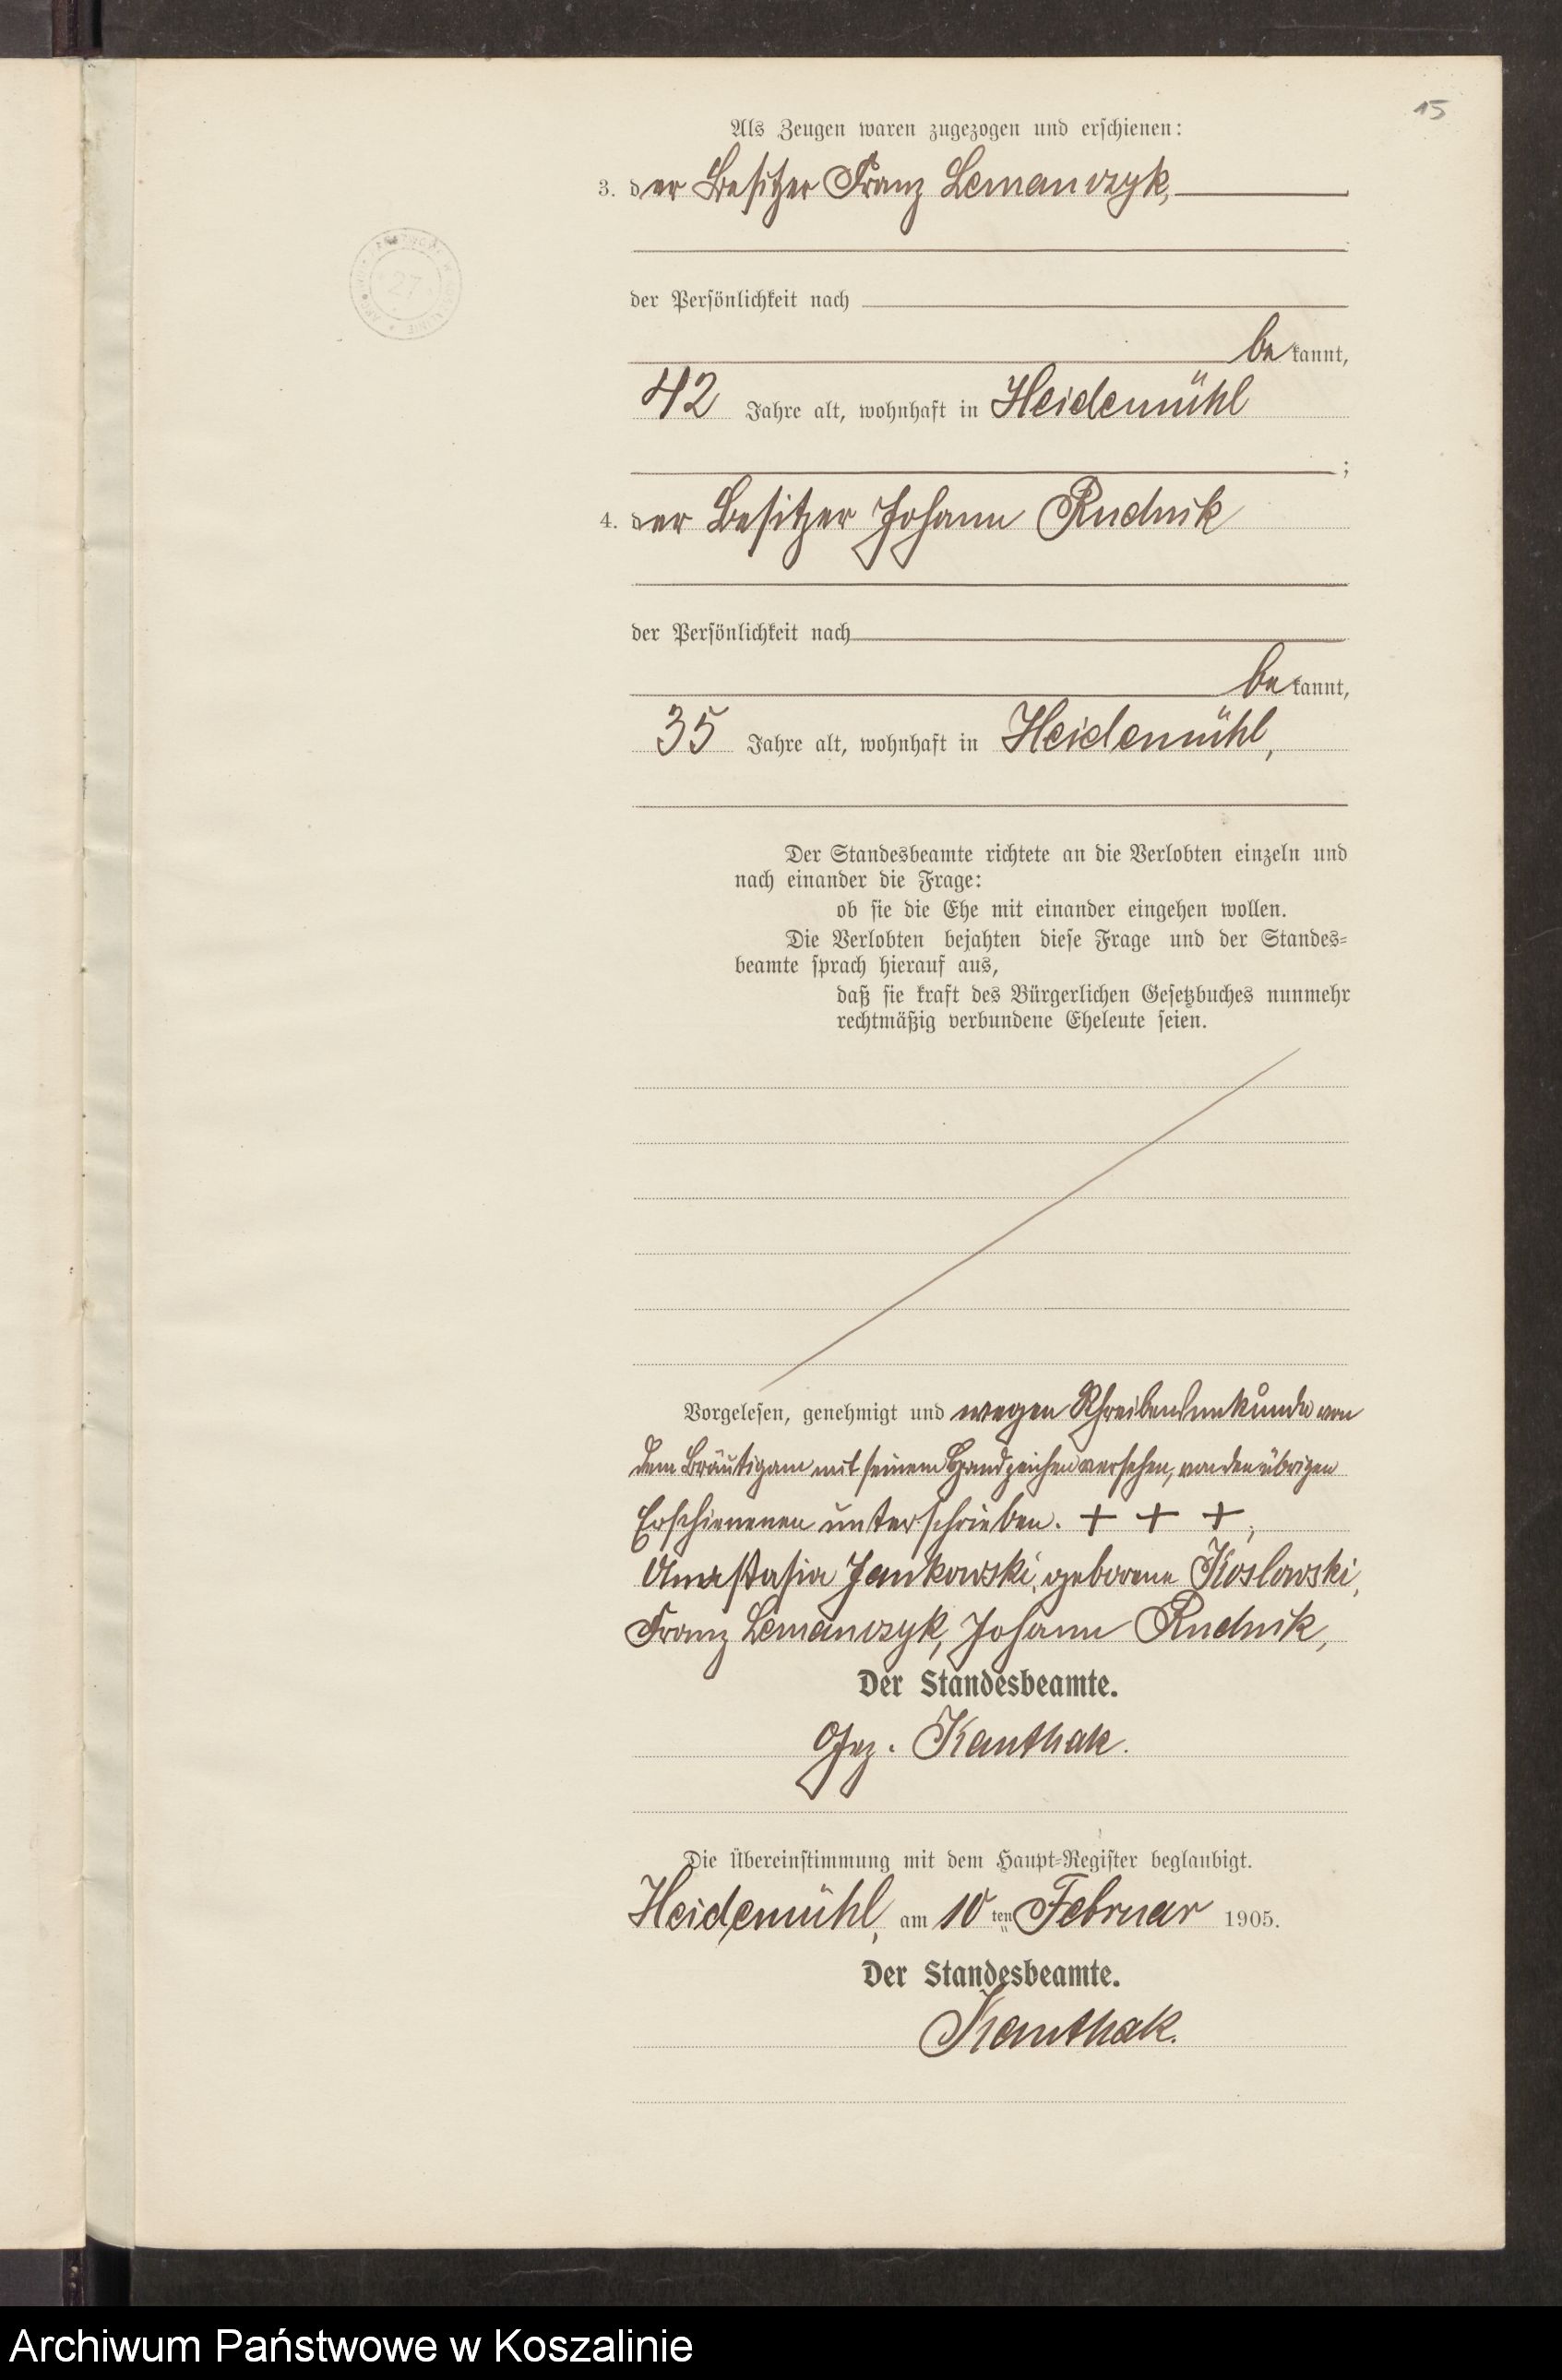 15
Als Zeugen waren zugezogen und erschienen:
3. der Besitzer Franz Lemanczyk,
der Persönlichkeit nach
bekannt,
42 Jahre alt, wohnhaft in Heidemühl
;
4. der Besitzer Johann Rudnik
der Persönlichkeit nach
bekannt,
35 Jahre alt, wohnhaft in Heidemühl,
Der Standesbeamte richtete an die Verlobten einzeln und
nach einander die Frage:
ob sie die Ehe mit einander eingehen wollen.
Die Verlobten bejahten diese Frage und der Standes=
beamte sprach hierauf aus,
daß sie kraft des Bürgerlichen Gesetzbuches nunmehr
rechtmäßig verbundene Eheleute seien.
Vorgelesen, genehmigt und wegen Schreibensunkunde von
dem Bräutigam mit seinem Handzeichen versehen, von den übrigen
Erschienenen unterschrieben. + + +,
Anastasia Jankowski, geborene Koslowski,
Franz Lemanczyk, Johann Rudnik,
Der Standesbeamte.
Gez. Kanthak.
Die Übereinstimmung mit dem Haupt=Register beglaubigt.
Heidemühl, am 10ten Februar 1905.
Der Standesbeamte.
Kanthak.
27
Archiwum Państwowe w Koszalinie